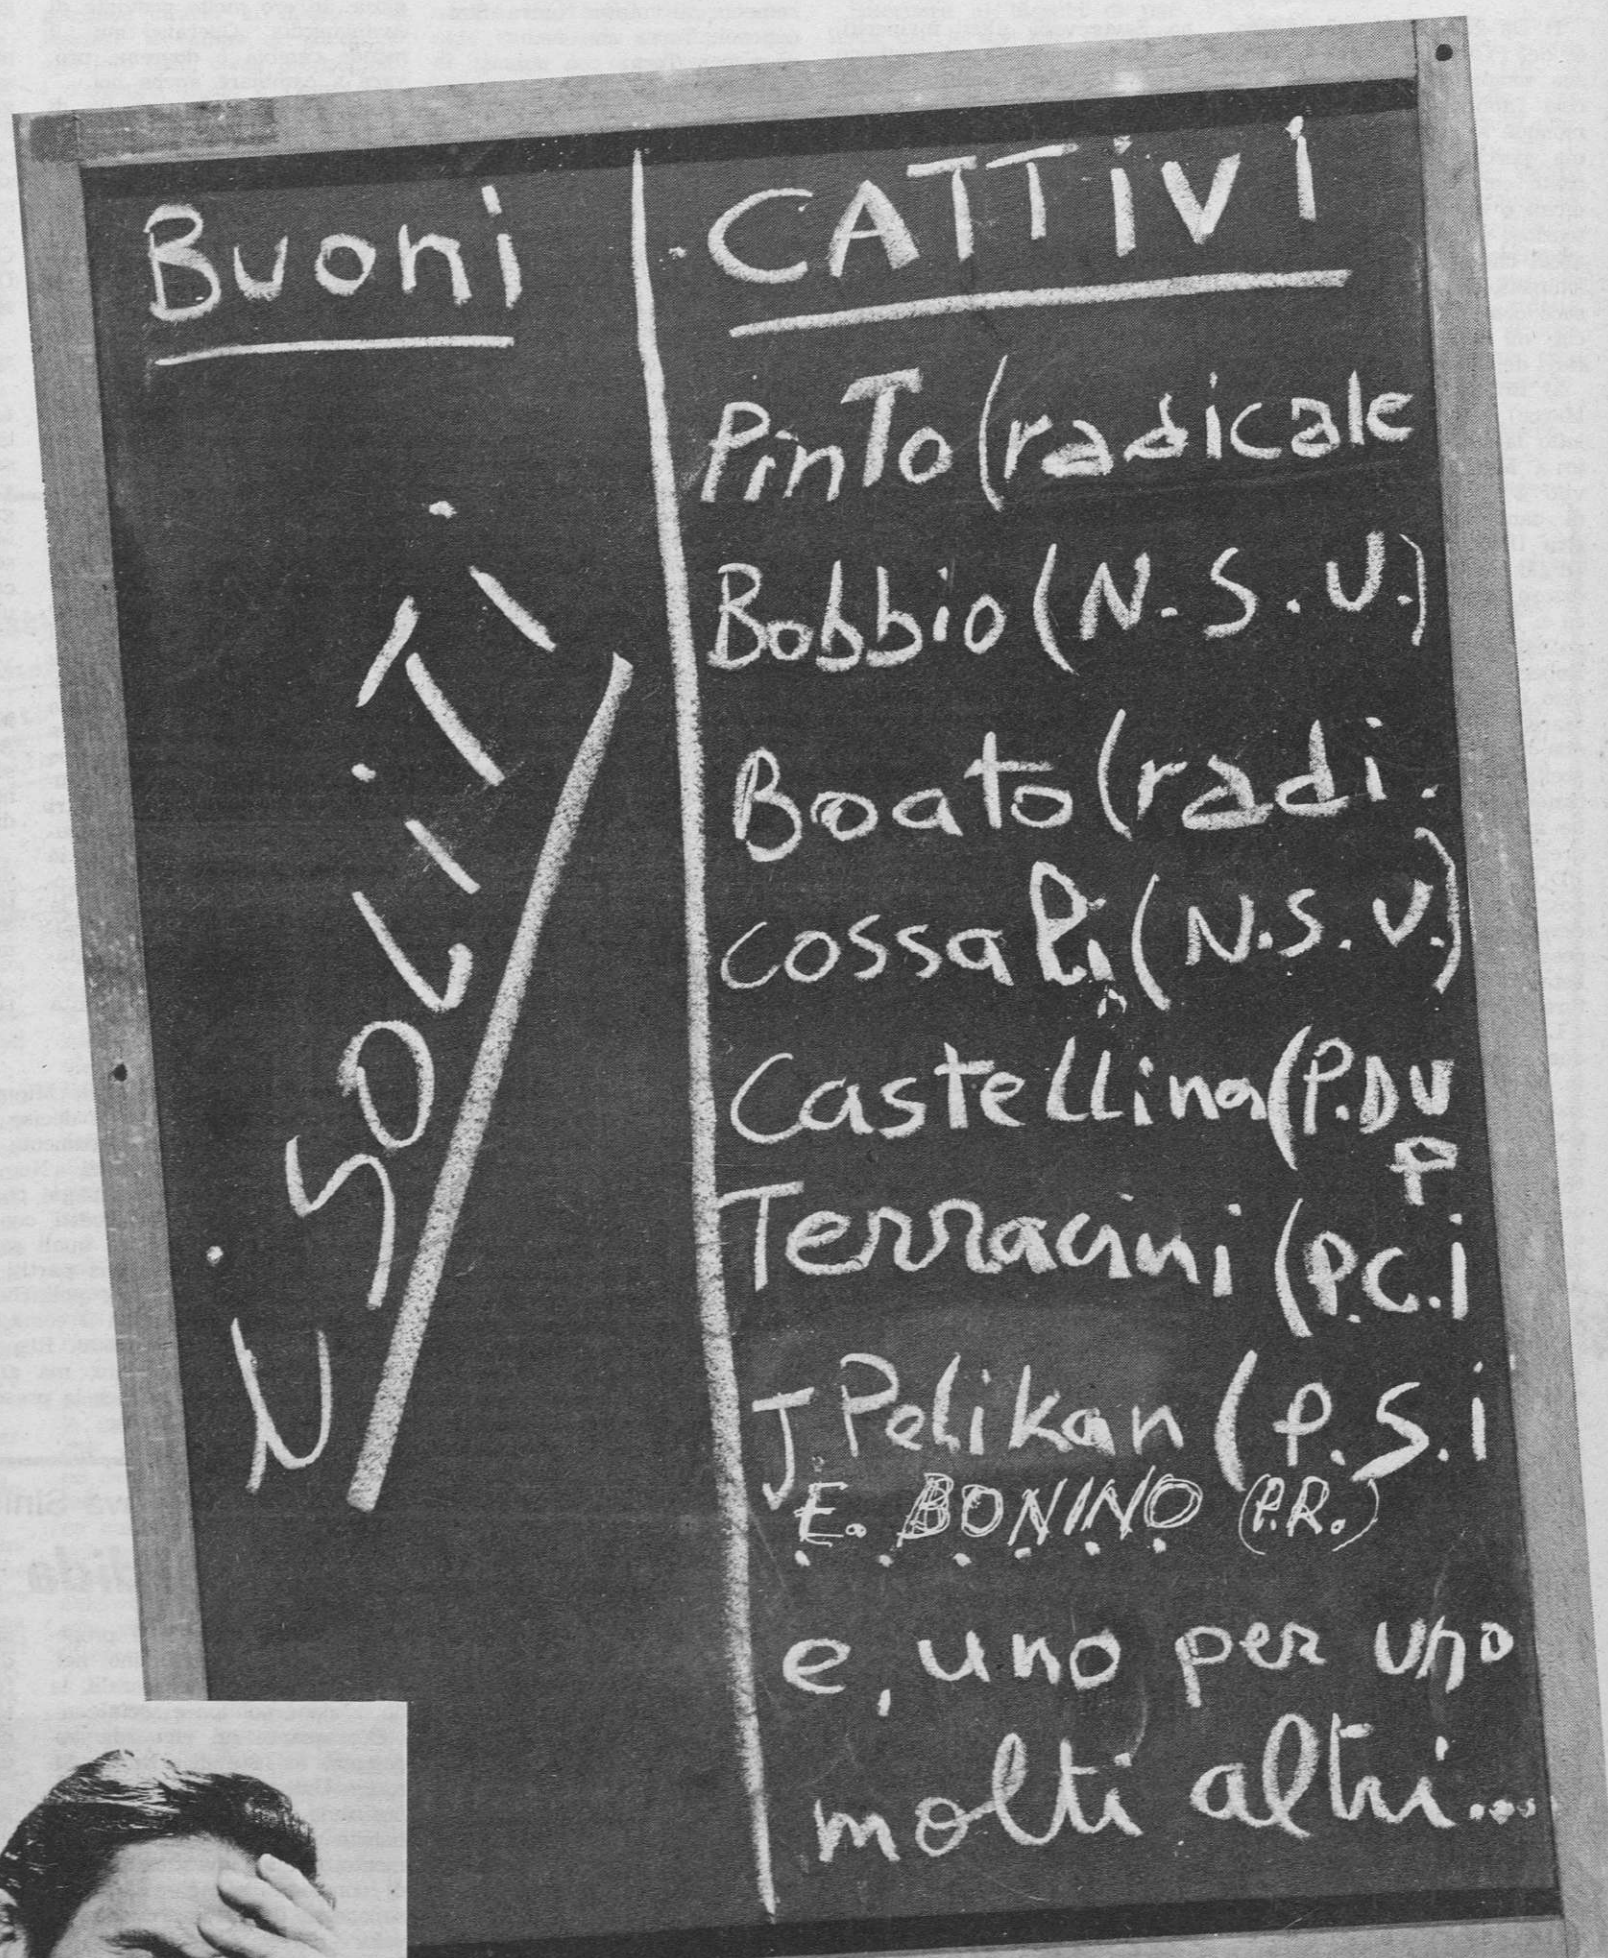 Buoni
i SOLITI
CATTiVi
PinTo (radicale
Bobbio (N.S.U.)
Boato (radi.
cossali (N.S.U.)
Castellina (P.DU
P
Terracini (P.C.i
J Pelikan (P.S.i
E. BONINO (P.R.)
e, uno per uno
molti altri...